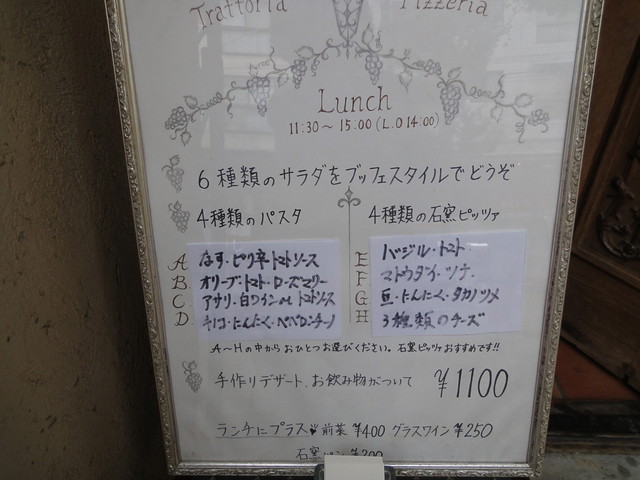 Trattoria Pizzeria
Lunch
11:30～15:00(L.O 14:00)
6種類のサラダをブッフェスタイルでどうぞ
4種類のパスタ
A なす・ピリ辛トマトソース
B オリーブ・トマト・ローズマリー
C アサリ・白ワインor トマトソース
D キノコ・にんにく・ペペロンチーノ
4種類の石窯ピッツァ
E バジル・トマト
F マトウダイ・ツナ
G 豆・にんにく・タカノツメ
H 3種類のチーズ
A～Hの中からおひとつお選びください。石窯ピッツァおすすめです!!
手作りデザート、お飲み物がついて ¥1100
ランチにプラス 前菜 ¥400 グラスワイン ¥250
石窯パン ¥200